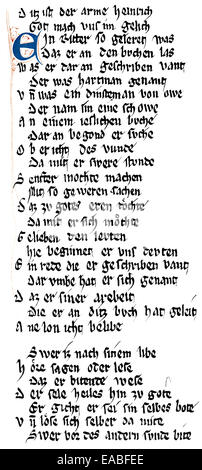 Ditz ist der arme heinrich
Got mach uns im gelich
Ein Riter so geleret was
Daz er an den buchen las
Was er dar an geschriben vant
Der was hartman genant
Vn was ein dinstman von owe
Der nam im eine schowe
An einem islichen buche
Dar an begond er suche
Ob er icht des vunde
Da mit er swere stunde
Senfter mochte machen
so geweren sachen
Daz zu gotes eren tochte
Da mit er sich mochte
Gelieben den leuten
hie beginnet er uns deuten
Ein rede die er geschriben vant
Dar vmbe hat er sich genant
Daz er siner arebeit
Die er an ditz buch hat geleit
Ane lon icht belibe
Swer iz nach sinem libe
Höre sagen oder lese
Daz er bitende wese
Der sele heiles hin zu gote
Er gicht er sei sin selbes bote
Vn löse sich selber da mite
Swer vor des andern sunde bite
alamy
EABFEE